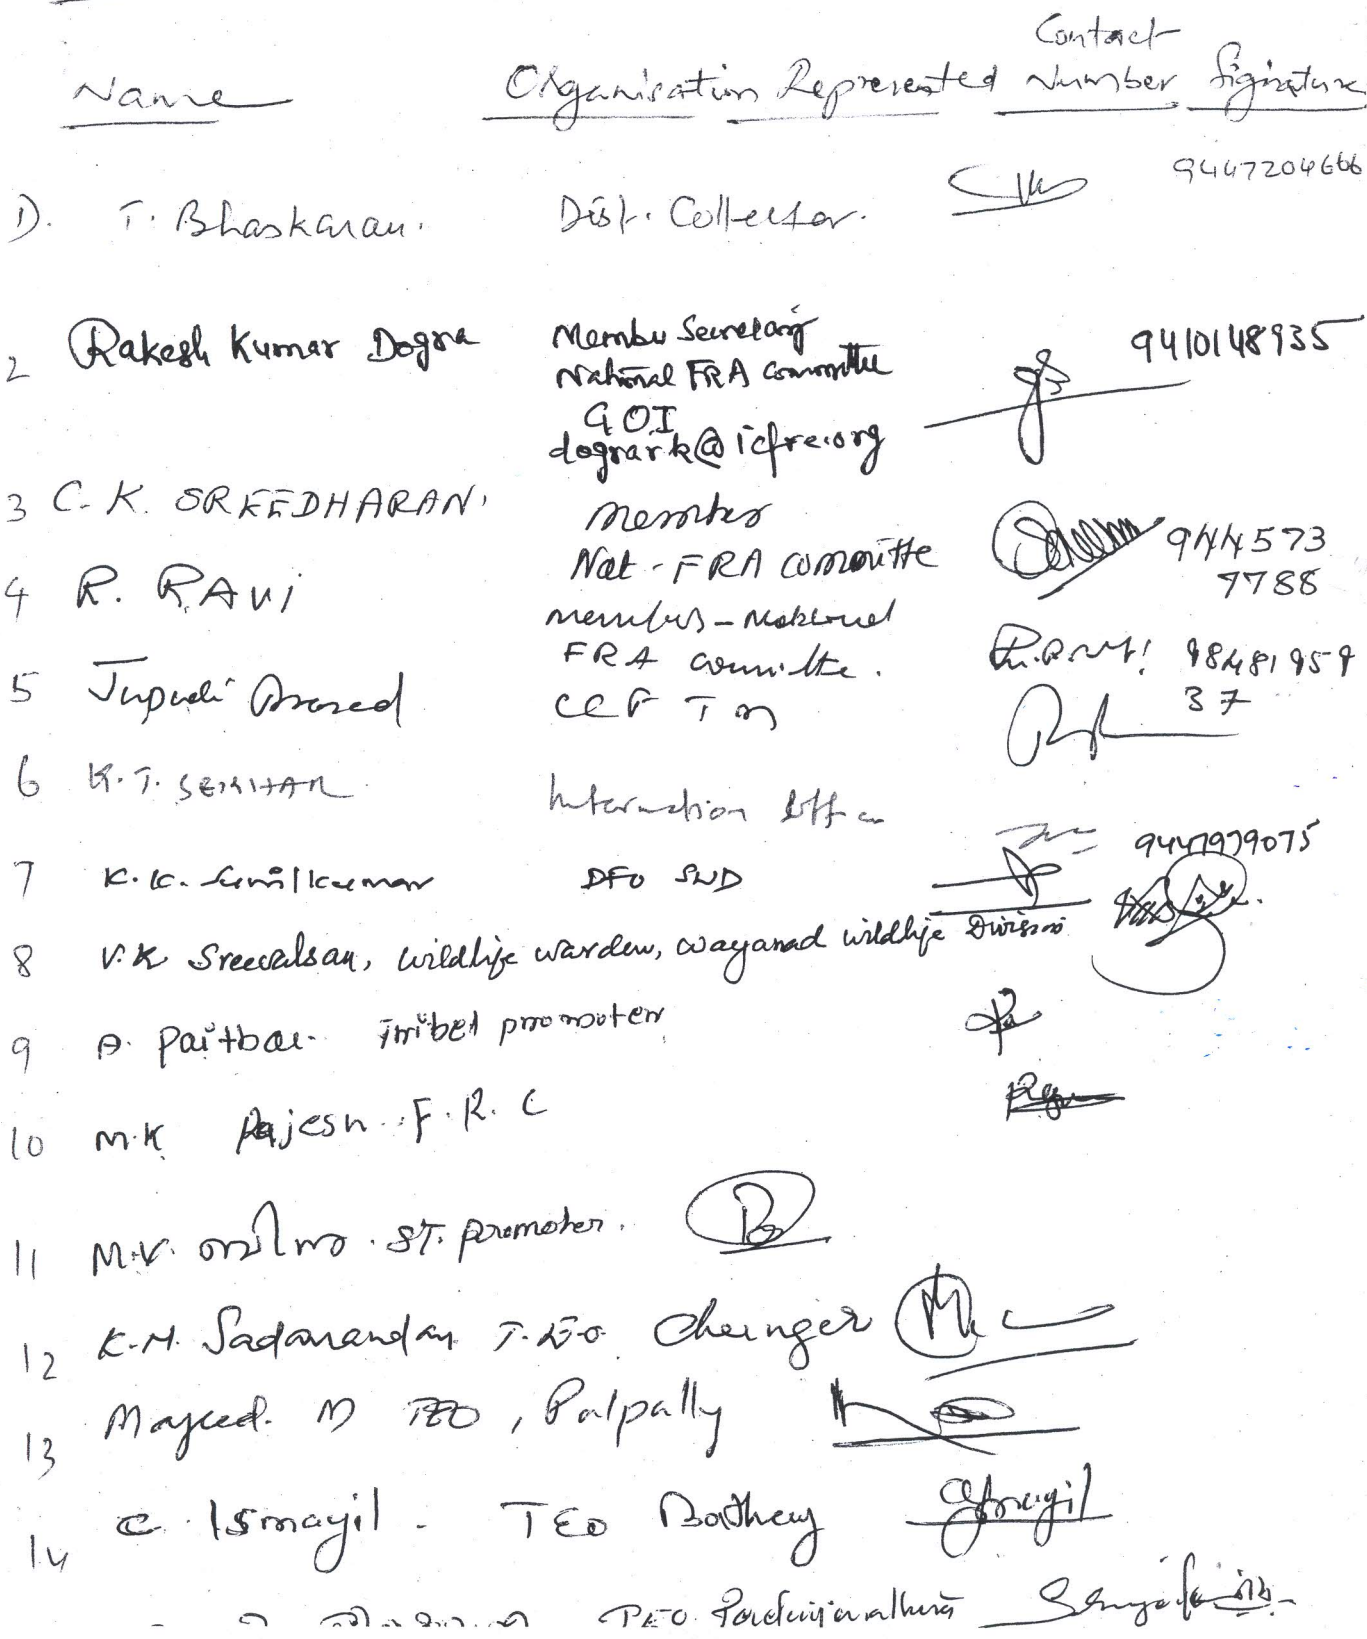 Contact
Name Organisation Represented Number Signature
1). T. Bhaskaran. Dist. Collector. 9447204666
2 Rakesh Kumar Dogra Member Secretary 9410148935
National FRA Committee
GOI
dogrark@icfre.org
3 C. K. SREEDHARAN. Member
Nat - FRA committe 944573
7788
4 R. RAVI Member - National
FRA committe. 98481959
37
5 Jupudi Prasad CCF TN
6 K. T. SEKHAR Information Officer
9447979075
7 K. K. Sunilkumar DFO SWD
8 V. K Sreevalsan, wildlife warden, wayanad wildlife Division
9 A. Paitbal. Tribel promoter
10 M.K Rajesh. F. R. C
11 M.V. ST. promoter.
12 K.M. Sadanandan T.E.O. Cheinger
13 Mayeed. M TEO, Pulpally
14 C. Ismayil - TEO Bathery
TEO